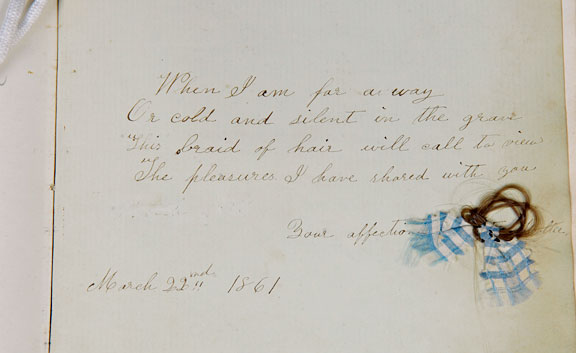 When I am far a way
Or cold and silent in the grave
This braid of hair will call to view
The pleasures I have shared with you
Your affection
March 22nd 1861